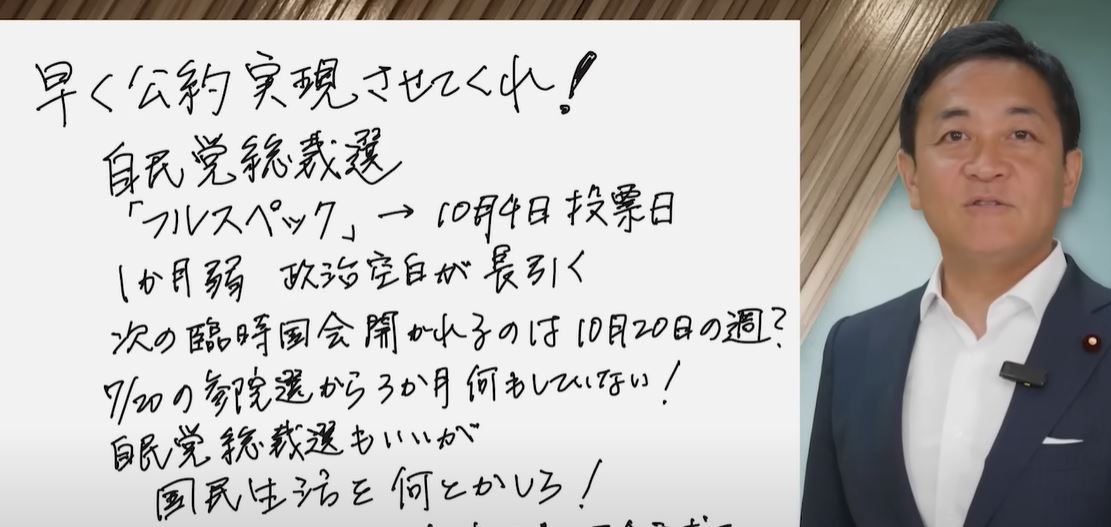 早く公約実現させてくれ!
自民党総裁選
「フルスペック」→10月4日投票日
1か月弱 政治空白が長引く
次の臨時国会開かれるのは10月20日の週?
7/20の参院選から3か月何もしていない!
自民党総裁選もいいが
国民生活を何とかしろ!